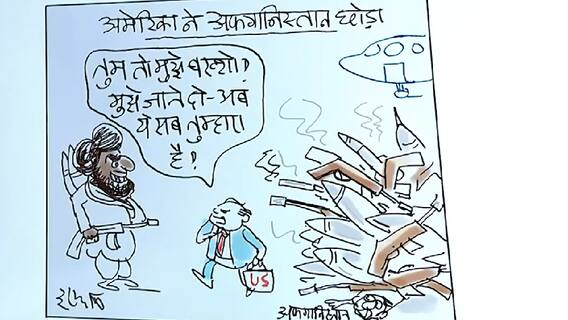 अमेरिका ने अफगानिस्तान छोड़ा
तुम तो मुझे बख्शो!
मुझे जाने दो-अब
ये सब तुम्हारा
है!
US
अफगानिस्तान